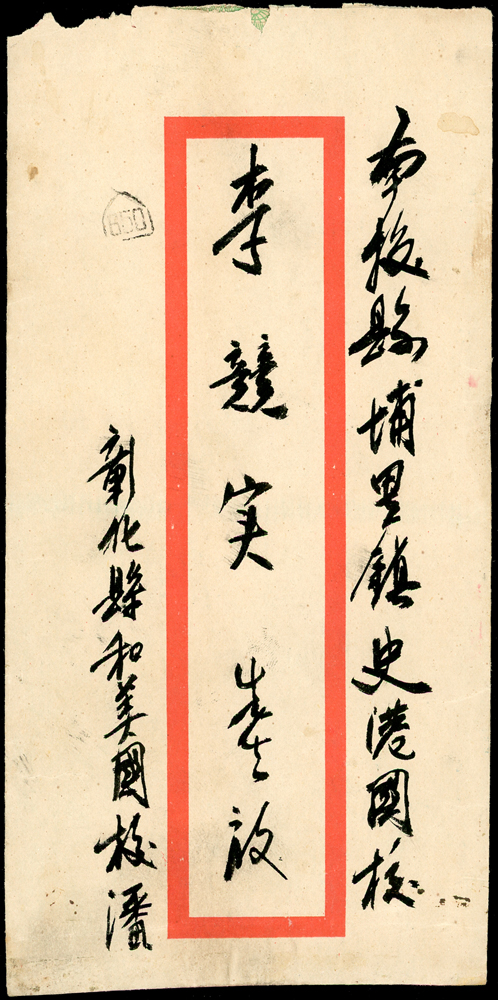 南投縣埔里鎮史港國校
李競実先生啟
彰化縣和美國校潘